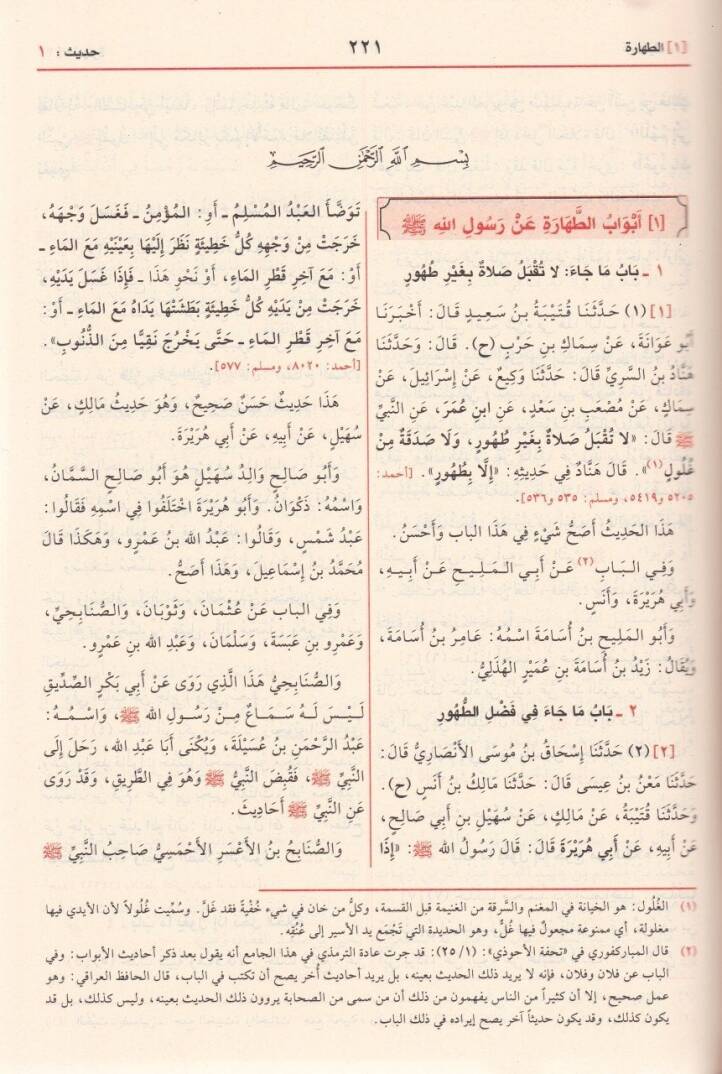 [١] الطهارة
٢٢١
حديث : ١
بِسْمِ اللَّهِ الرَّحْمَنِ الرَّحِيمِ
[١] أَبْوَابُ الطَّهَارَةِ عَنْ رَسُولِ اللهِ ﷺ
١ ـ بَابُ مَا جَاءَ: لَا تُقْبَلُ صَلَاةٌ بِغَيْرِ طُهُورٍ
[١] (١) حَدَّثَنَا قُتَيْبَةُ بنُ سَعِيدٍ قَالَ: أَخْبَرَنَا
أَبُو عَوَانَةَ، عَنْ سِمَاكِ بنِ حَرْبٍ (ح). قَالَ: وَحَدَّثَنَا
هَنَّادُ بنُ السَّرِيِّ قَالَ: حَدَّثَنَا وَكِيعٌ، عَنْ إِسْرَائِيلَ، عَنْ
سِمَاكٍ، عَنْ مُصْعَبِ بنِ سَعْدٍ، عَنِ ابنِ عُمَرَ، عَنِ النَّبيِّ
ﷺ قَالَ: «لَا تُقْبَلُ صَلَاةٌ بِغَيْرِ طُهُورٍ، وَلَا صَدَقَةٌ مِنْ
غُلُولٍ(١)». قَالَ هَنَّادٌ فِي حَدِيثِهِ: «إِلَّا بِطُهُورٍ». [أحمد:
٥٢٠٥ و٥٤١٩، ومسلم: ٥٣٥ و٥٣٦].
هَذَا الْحَدِيثُ أَصَحُّ شَيْءٍ فِي هَذَا الباب وَأَحْسَنُ.
وَفِي البَابِ(٢) عَنْ أَبِي المَلِيحِ عَنْ أَبِيهِ،
وَأَبِي هُرَيْرَةَ، وَأَنَسٍ.
وَأَبُو المَلِيحِ بنُ أُسَامَةَ اسْمُهُ: عَامِرُ بنُ أُسَامَةَ،
وَيُقَالُ: زَيْدُ بنُ أُسَامَةَ بنِ عُمَيْرٍ الهُذَلِيُّ.
٢ ـ بَابُ مَا جَاءَ فِي فَضْلِ الطُّهُورِ
[٢] (٢) حَدَّثَنَا إِسْحَاقُ بنُ مُوسَى الأَنْصَارِيُّ قَالَ:
حَدَّثَنَا مَعْنُ بنُ عِيسَى قَالَ: حَدَّثَنَا مَالِكُ بنُ أَنَسٍ (ح).
وَحَدَّثَنَا قُتَيْبَةُ، عَنْ مَالِكٍ، عَنْ سُهَيْلِ بنِ أَبِي صَالِحٍ،
عَنْ أَبِيهِ، عَنْ أَبِي هُرَيْرَةَ قَالَ: قَالَ رَسُولُ اللهِ ﷺ: «إِذَا
تَوَضَّأَ العَبْدُ المُسْلِمُ ـ أَوِ: المُؤْمِنُ ـ فَغَسَلَ وَجْهَهُ،
خَرَجَتْ مِنْ وَجْهِهِ كُلُّ خَطِيئَةٍ نَظَرَ إِلَيْهَا بِعَيْنَيْهِ مَعَ المَاءِ ـ
أَوْ: مَعَ آخِرِ قَطْرِ المَاءِ، أَوْ نَحْوِ هَذَا ـ فَإِذَا غَسَلَ يَدَيْهِ،
خَرَجَتْ مِنْ يَدَيْهِ كُلُّ خَطِيئَةٍ بَطَشَتْهَا يَدَاهُ مَعَ المَاءِ ـ أَوْ:
مَعَ آخِرِ قَطْرِ المَاءِ ـ حَتَّى يَخْرُجَ نَقِيًّا مِنَ الذُّنُوبِ».
[أحمد: ٨٠٢٠، ومسلم: ٥٧٧].
هَذَا حَدِيثٌ حَسَنٌ صَحِيحٌ، وَهُوَ حَدِيثُ مَالِكٍ، عَنْ
سُهَيْلٍ، عَنْ أَبِيهِ، عَنْ أَبِي هُرَيْرَةَ.
وَأَبُو صَالِحٍ وَالِدُ سُهَيْلٍ هُوَ أَبُو صَالِحٍ السَّمَّانُ،
وَاسْمُهُ: ذَكْوَانُ. وَأَبُو هُرَيْرَةَ اخْتَلَفُوا فِي اسْمِهِ فَقَالُوا:
عَبْدُ شَمْسٍ، وَقَالُوا: عَبْدُ الله بنُ عَمْرٍو، وَهَكَذَا قَالَ
مُحَمَّدُ بنُ إِسْمَاعِيلَ، وَهَذَا أَصَحُّ.
وَفِي الباب عَنْ عُثْمَانَ، وَثَوْبَانَ، وَالصُّنَابِحِيِّ،
وَعَمْرِو بنِ عَبَسَةَ، وَسَلْمَانَ، وَعَبْدِ الله بنِ عَمْرٍو.
وَالصُّنَابِحِيُّ هَذَا الَّذِي رَوَى عَنْ أَبِي بَكْرٍ الصِّدِّيقِ
لَيْسَ لَهُ سَمَاعٌ مِنْ رَسُولِ الله ﷺ، وَاسْمُهُ:
عَبْدُ الرَّحْمَنِ بنُ عُسَيْلَةَ، وَيُكْنَى أَبَا عَبْدِ الله، رَحَلَ إِلَى
النَّبِيِّ ﷺ، فَقُبِضَ النَّبِيُّ ﷺ وَهُوَ فِي الطَّرِيقِ، وَقَدْ رَوَى
عَنِ النَّبِيِّ ﷺ أَحَادِيثَ.
وَالصُّنَابِحُ بنُ الأَعْسَرِ الأَحْمَسِيُّ صَاحِبُ النَّبِيِّ ﷺ
(١) الغُلُول: هو الخيانة في المغنم والسَّرقة من الغنيمة قبل القسمة، وكلُّ من خان في شيء خُفْيةً فقد غَلَّ. وسُمِّيت غُلُولاً لأن الأيدي فيها
مغلولة، أي ممنوعة مجعولٌ فيها غُلٌّ، وهو الحديدة التي تَجْمَع يد الأسير إلى عُنُقِه.
(٢) قال المباركفوري في «تحفة الأحوذي»: (١/ ٢٥): قد جرت عادة الترمذي في هذا الجامع أنه يقول بعد ذكر أحاديث الأبواب: وفي
الباب عن فلان وفلان، فإنه لا يريد ذلك الحديث بعينه، بل يريد أحاديث أُخر يصح أن تكتب في الباب، قال الحافظ العراقي: وهو
عمل صحيح، إلا أن كثيراً من الناس يفهمون من ذلك أن من سمى من الصحابة يروون ذلك الحديث بعينه، وليس كذلك، بل قد
يكون كذلك، وقد يكون حديثاً آخر يصح إيراده في ذلك الباب.